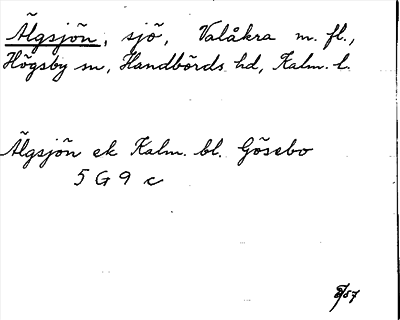 Älgsjön, sjö, Valåkra m. fl.,
Högsby sn, Handbörds hd, Kalm. l.
Älgsjön ek Kalm. bl. Gösebo
5 G 9 c